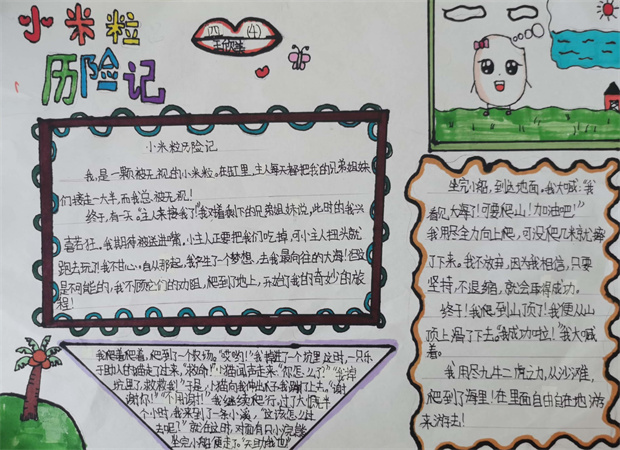 小米粒
历险记
四（4）
小米粒历险记
我,是一颗被无视的小米粒。在缸里,主人每天都把我的兄弟姐妹
们接走一大半,而我总被无视!
终于,有一天。主人来接我了!"我对着剩下的兄弟姐妹说,此时的我兴
奋若狂。我期待被送进嘴,小主人正要把我们吃掉,可小主人扭头就
跑去玩了!我不甘心。自从那起,我产生了个梦想,去我最向往的大海!但这
是不可能的,我不顾它们的劝阻,爬到了地上,开始了我的奇妙的旅
程!
我爬着爬着,爬到了一个农场。"哎哟!"我掉进了一个坑里这时,一只乐
于助人的猫走了过来,"救命!"小猫闻声走来。"你怎么了?""我掉
坑里了,救救我!"于是,小猫向我伸出爪子我蹦了上去。"谢
谢你!""不用谢!"我继续爬行,过了大概半
个小时,我来到了一条小溪,"这该怎么过
去呢?"就在这时,对面有只小
坐完小船便走了。
坐完小船,到达地面。我大喊:"我
看见大海了!可要爬山!加油吧!"
我用尽全力向上爬,可没爬几米就瘫
了下来。我不放弃,因为我相信,只要
坚持,不退缩,就会取得成功。
终于!我爬到山顶了!我便从山
顶上滑了下去。"我成功啦!"我大喊
着。
我用尽九牛二虎之力,从沙滩,
爬到了海里!在里面自由自在地游
来游去!